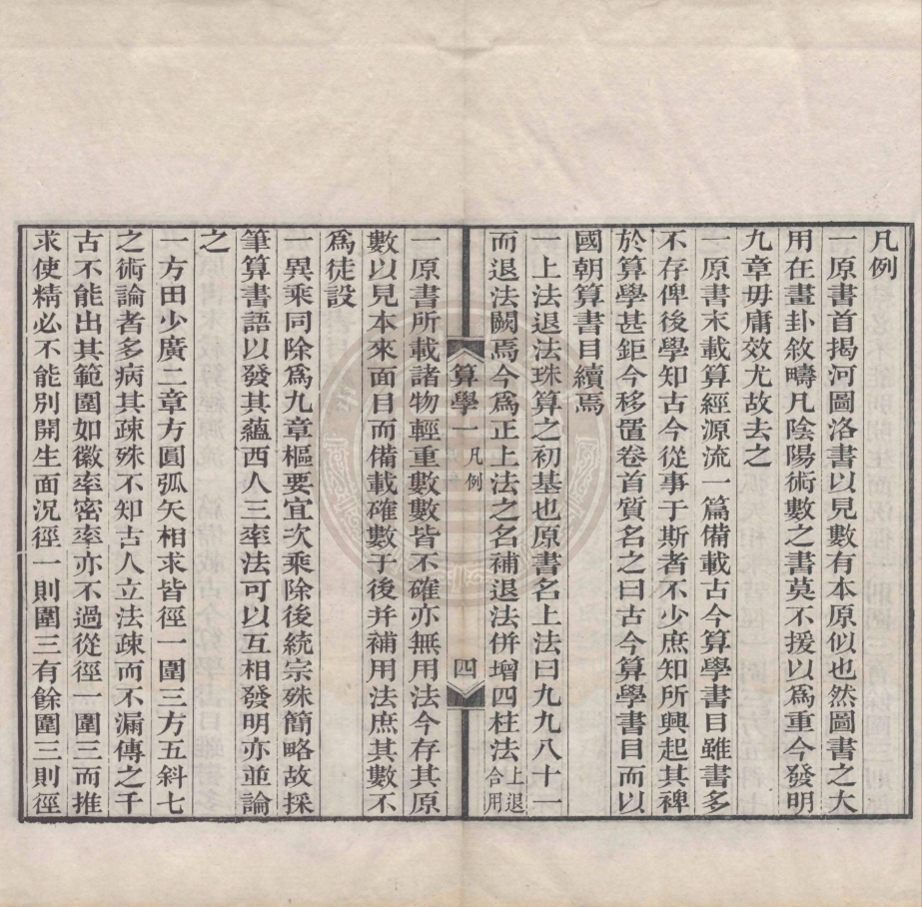 凡例
一原書首揭河圖洛書以見數有本原似也然圖書之大
用在畫卦敘疇凡陰陽術數之書莫不援以爲重今發明
九章毋庸效尤故去之
一原書末載算經源流一篇備載古今算學書目雖書多
不存俾後學知古今從事于斯者不少庶知所興起其裨
於算學甚鉅今移置卷首質名之曰古今算學書目而以
國朝算書目續焉
一上法退法珠算之初基也原書名上法曰九九八十一
而退法闕焉今爲正上法之名補退法併增四柱法上退合用
算學一 凡例 四
一原書所載諸物輕重數數皆不確亦無用法今存其原
數以見本來面目而備載確數于後并補用法庶其數不
爲徒設
一異乘同除爲九章樞要宜次乘除後統宗殊簡略故採
筆算書語以發其蘊西人三率法可以互相發明亦並論
之
一方田少廣二章方圓弧矢相求皆徑一圍三方五斜七
之術論者多病其疎殊不知古人立法疎而不漏傳之千
古不能出其範圍如徽率密率亦不過從徑一圍三而推
求使精必不能別開生面況徑一則圍三有餘圍三則徑